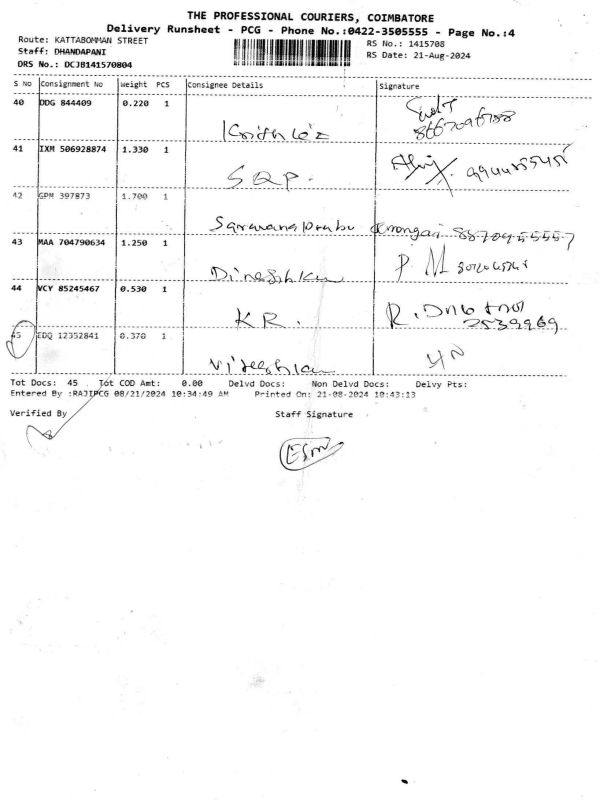 THE PROFESSIONAL COURIERS, COIMBATORE
Delivery Runsheet - PCG - Phone No.:0422-3505555 - Page No.:4
Route: KATTABOMMAN STREET
RS No.: 1415708
Staff: DHANDAPANI
RS Date: 21-Aug-2024
DRS No.: DCJB141570804
S No Consignment No Weight PCS Consignee Details Signature
40 DDG 844409 0.220 1
41 IXM 506928874 1.330 1
SQP.
42 GPM 397873 1.700 1
Saravana Prabu
43 MAA 704790634 1.250 1
Dineshkum P. M
44 VCY 85245467 0.530 1
KR. R.
45 EDQ 12352841 0.370 1
Tot Docs: 45 Tot COD Amt: 0.00 Delvd Docs: Non Delvd Docs: Delvy Pts:
Entered By :RAJIPCG 08/21/2024 10:34:49 AM Printed On: 21-08-2024 10:43:13
Verified By Staff Signature